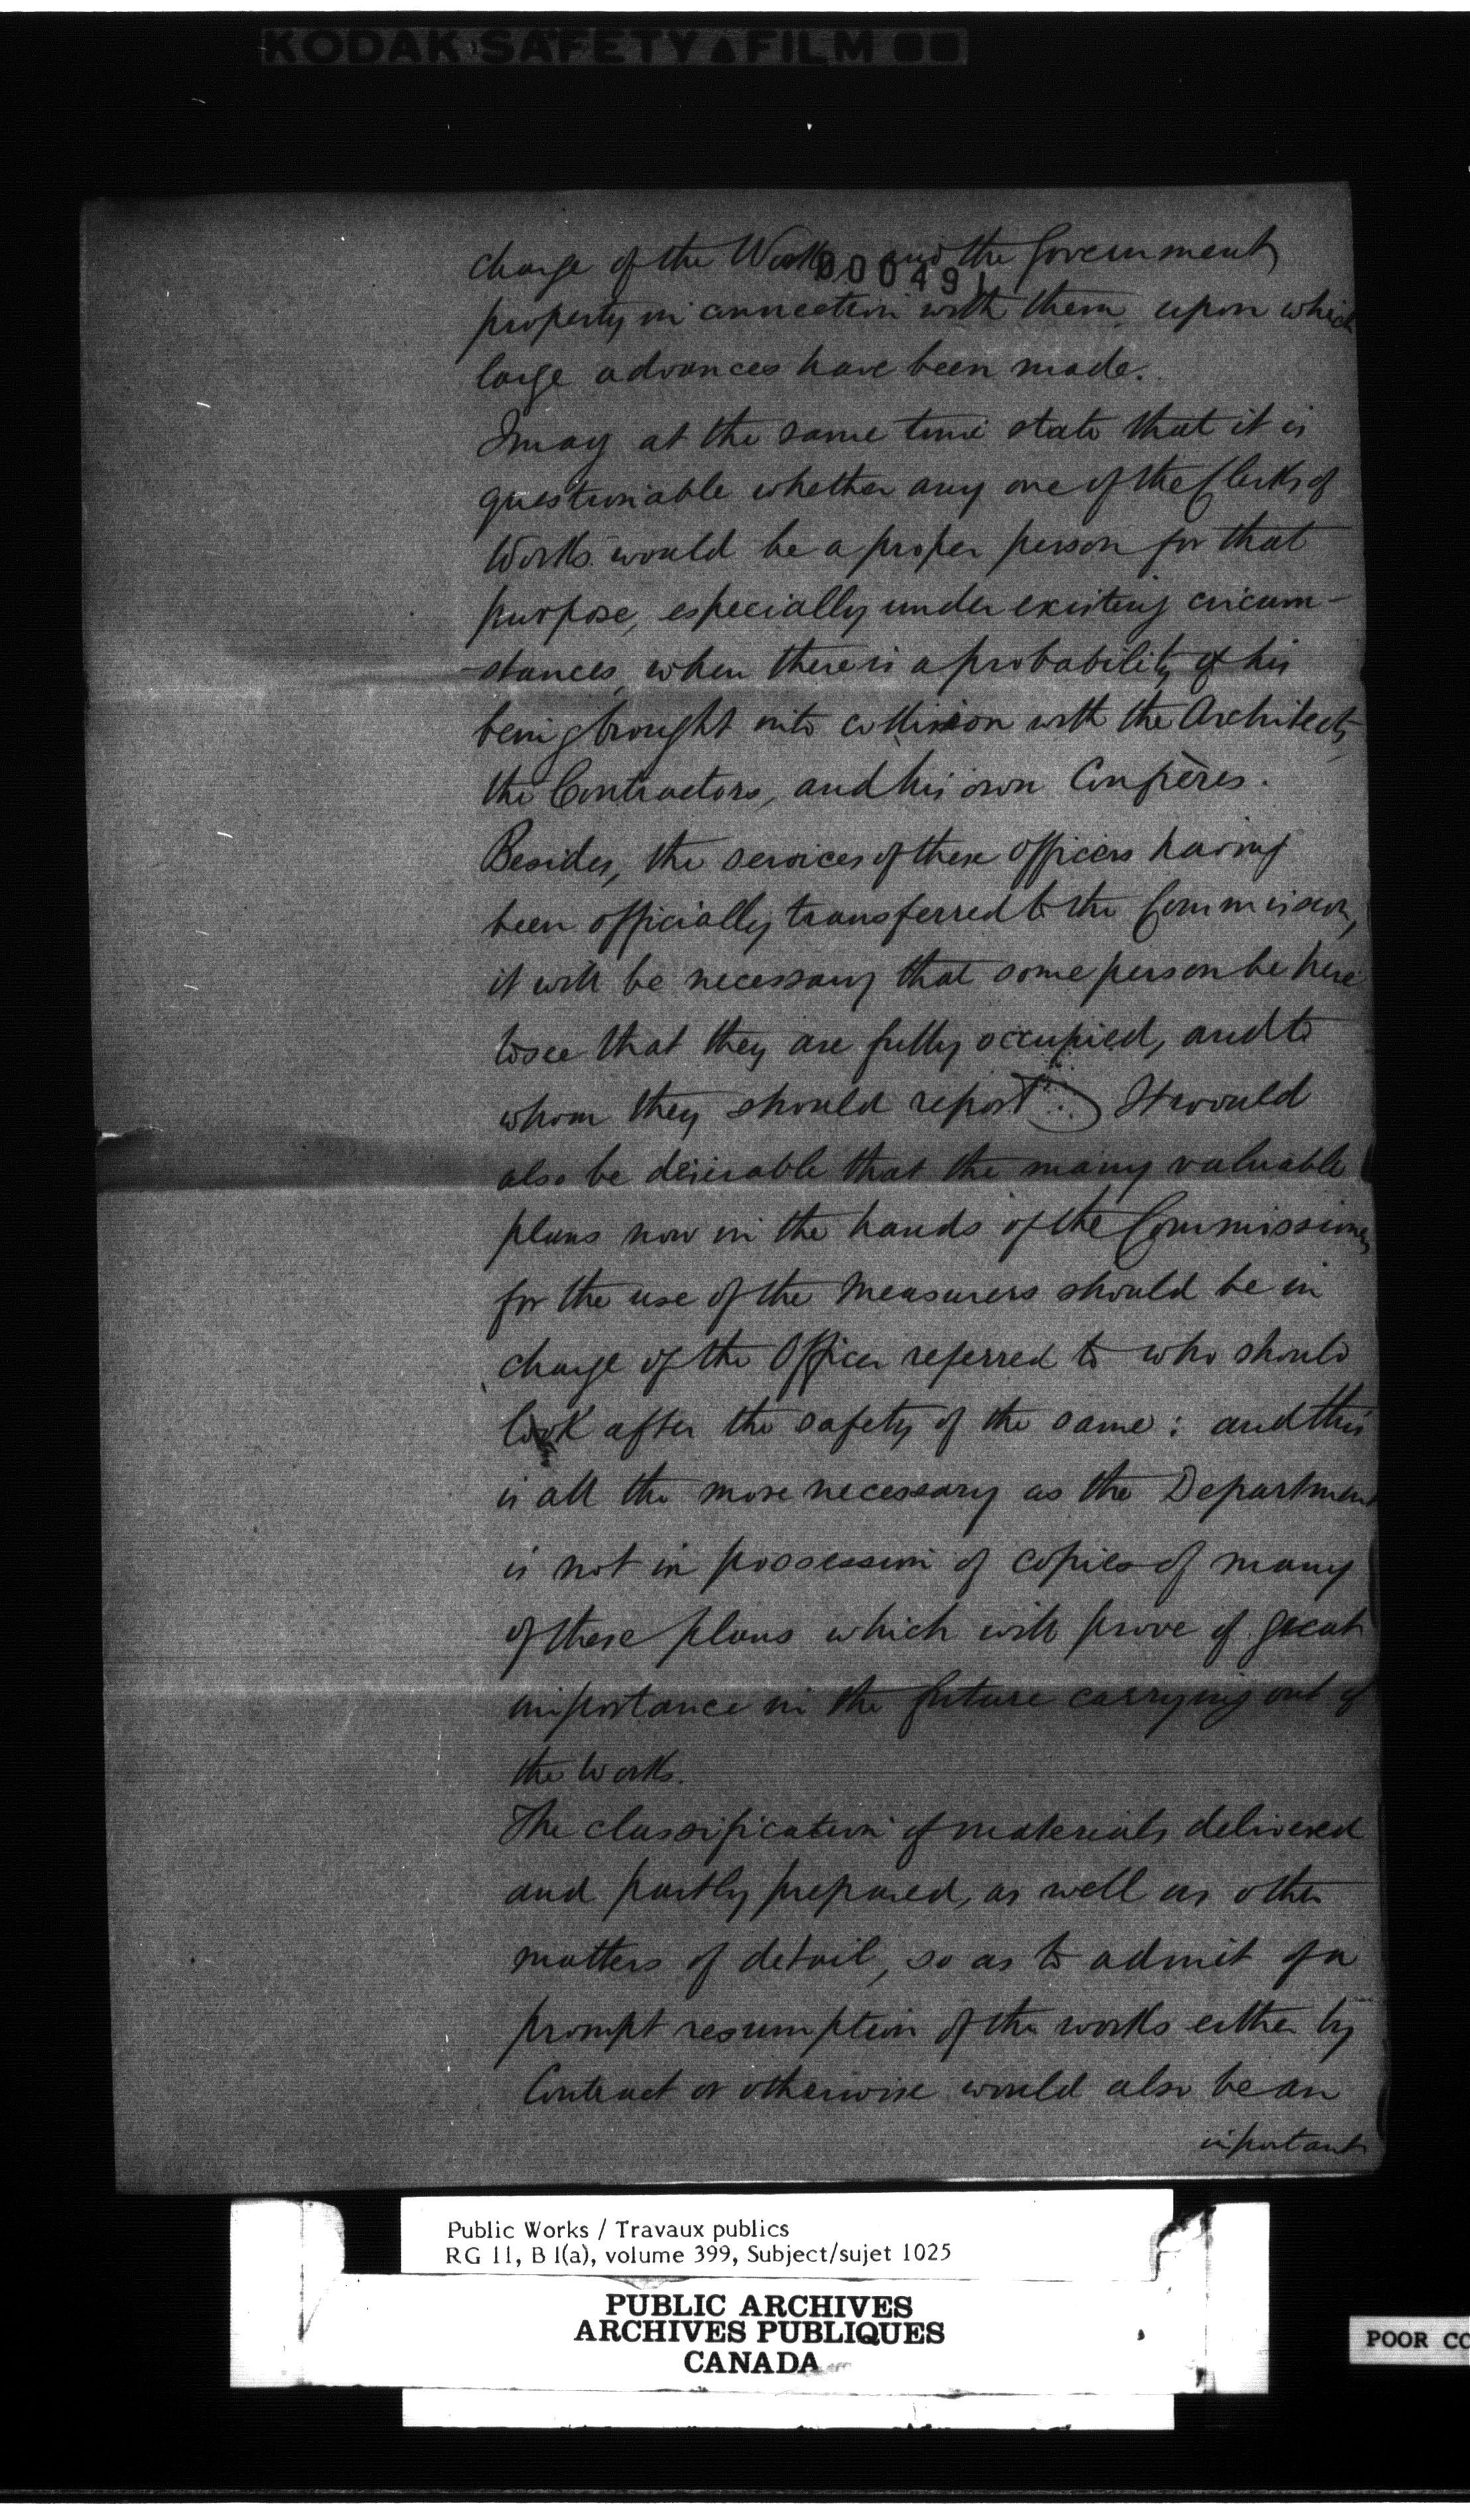 KODAK SAFETY FILM
000491
charge of the Works, and the Government
property in connection with them, upon which
large advances have been made.
I may at the same time state that it is
questionable whether any one of the Clerks of
Works would be a proper person for that
purpose, especially under existing circum-
-stances, when there is a probability of his
being brought into collision with the Architects,
the Contractors, and his own Confrères.
Besides, the services of these officers having
been officially transferred to the Commission,
it will be necessary that some person be here
to see that they are fully occupied, and to
whom they should report. It would
also be desirable that the many valuable
plans now in the hands of the Commissioners
for the use of the Measurers should be in
charge of the Officer referred to who should
look after the safety of the same: and this
is all the more necessary as the Department
is not in possession of copies of many
of these plans which will prove of great
importance in the future carrying out of
the Works.
The classification of materials delivered
and partly prepared, as well as other
matters of detail, so as to admit of a
prompt resumption of the works either by
Contract or otherwise would also be an
important
Public Works / Travaux publics
RG 11, B 1(a), volume 399, Subject/sujet 1025
PUBLIC ARCHIVES
ARCHIVES PUBLIQUES
CANADA
POOR CO